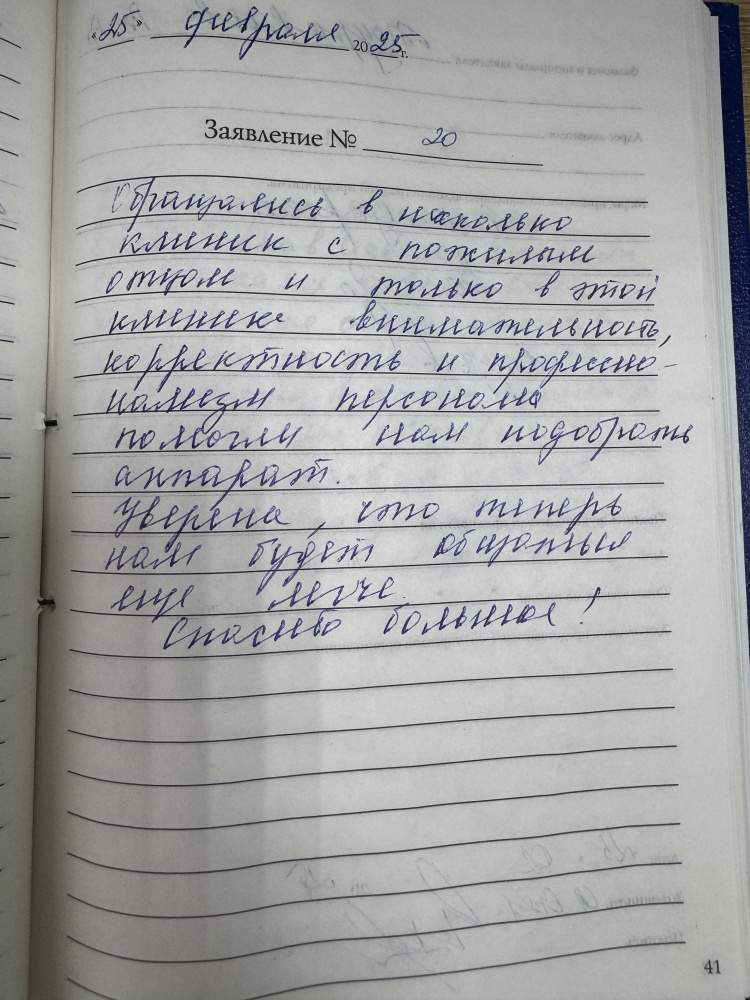 «25» февраля 2025 г.
Заявление № 20
Обращались в несколько
клиник с пожилым
отцом и только в этой
клинике внимательность,
корректность и профессио-
нализм персонала
помогли нам подобрать
аппарат.
Уверена, что теперь
нам будет общаться
еще легче.
Спасибо большое!
41